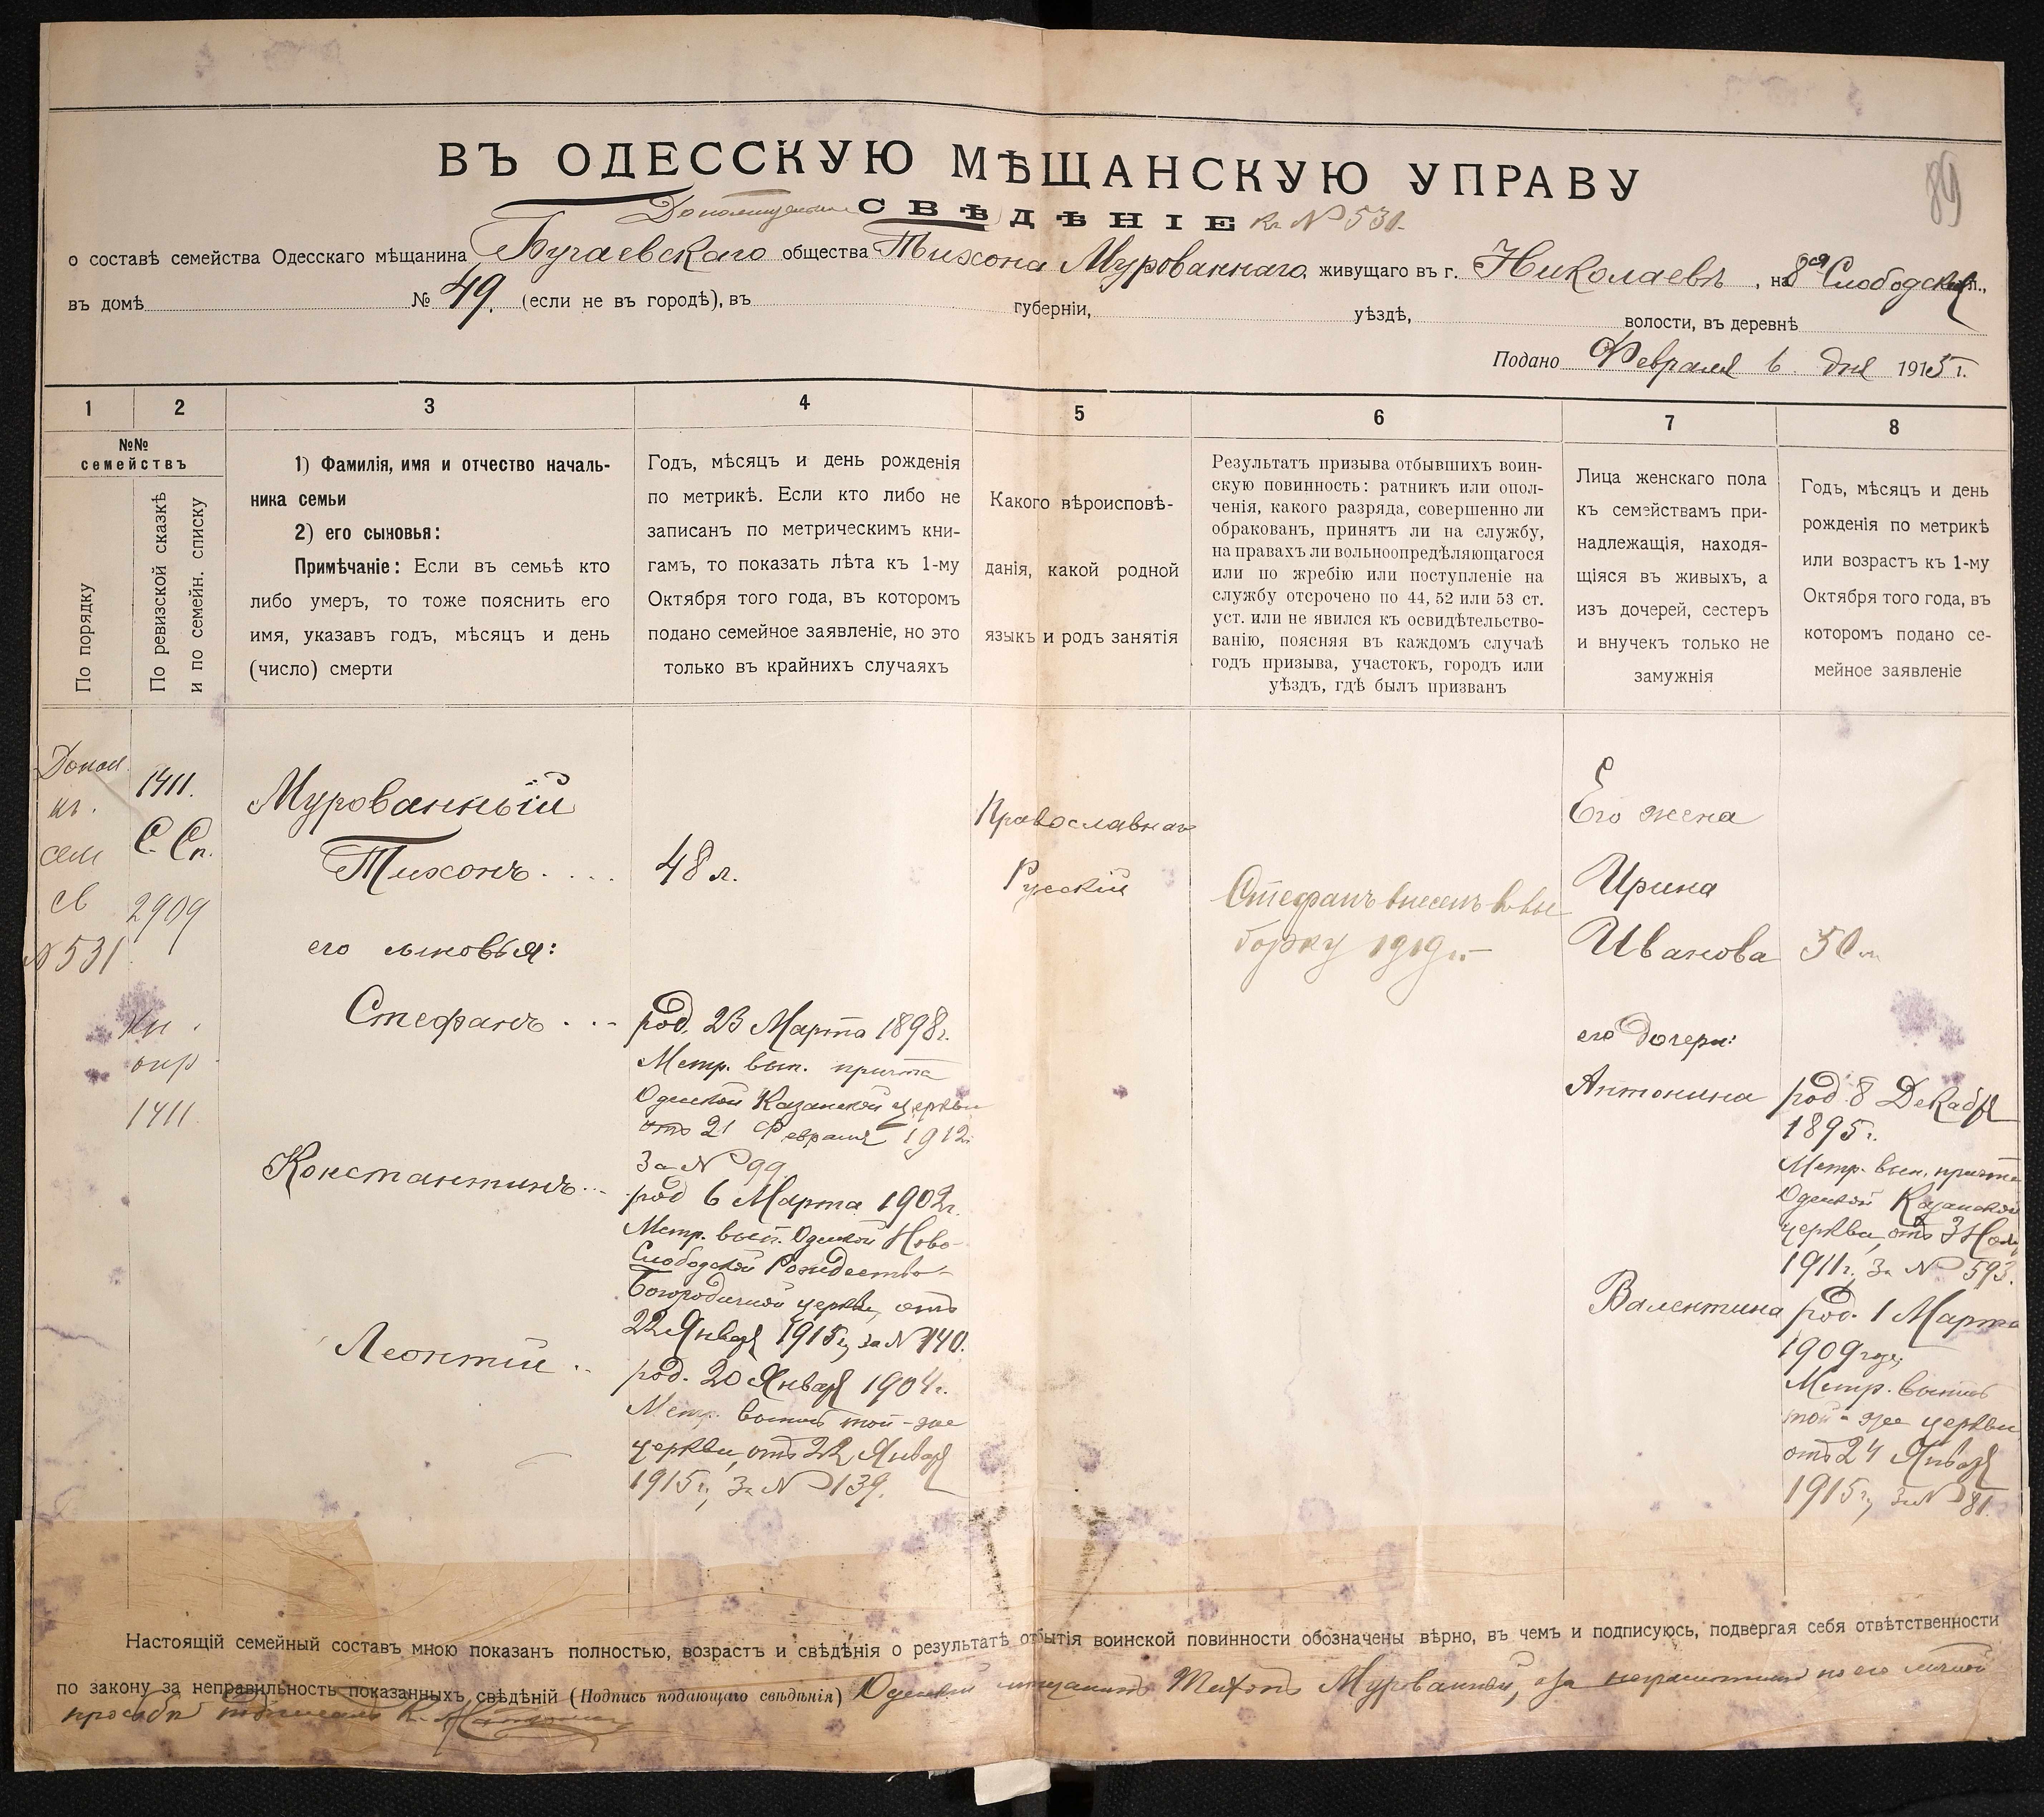 89
ВЪ ОДЕССКУЮ МѢЩАНСКУЮ УПРАВУ
СВѢДѢНІЕ № 531.
о составѣ семейства Одесскаго мѣщанина Бугаевскаго общества Тихона Мурованнаго, живущаго въ г. Николаевъ, на 8ой Слободской ул.,
въ домѣ № 49. (если не въ городѣ), въ губерніи, уѣздѣ, волости, въ деревнѣ
Подано Февраля 6 дня 1915 г.
1 2 3 4 5 6 7 8
№№
семействъ
По порядку
По ревизской сказкѣ
и по семейн. списку
1) Фамилія, имя и отчество началь-
ника семьи
2) его сыновья:
Примѣчаніе: Если въ семьѣ кто
либо умеръ, то тоже пояснить его
имя, указавъ годъ, мѣсяцъ и день
(число) смерти
Годъ, мѣсяцъ и день рожденія
по метрикѣ. Если кто либо не
записанъ по метрическимъ кни-
гамъ, то показать лѣта къ 1-му
Октября того года, въ которомъ
подано семейное заявленіе, но это
только въ крайнихъ случаяхъ
Какого вѣроисповѣ-
данія, какой родной
языкъ и родъ занятія
Результатъ призыва отбывшихъ воин-
скую повинность: ратникъ или опол-
ченія, какого разряда, совершенно ли
обракованъ, принятъ ли на службу,
на правахъ ли вольноопредѣляющагося
или по жребію или поступленіе на
службу отсрочено по 44, 52 или 53 ст.
уст. или не явился къ освидѣтельство-
ванію, поясняя въ каждомъ случаѣ
годъ призыва, участокъ, городъ или
уѣздъ, гдѣ былъ призванъ
Лица женскаго пола
къ семействамъ при-
надлежащія, находя-
щіяся въ живыхъ, а
изъ дочерей, сестеръ
и внучекъ только не
замужнія
Годъ, мѣсяцъ и день
рожденія по метрикѣ
или возрастъ къ 1-му
Октября того года, въ
которомъ подано се-
мейное заявленіе
Допол.
къ.
сем
св
№ 531
1411.
С. Сп.
2909
1411.
Мурованный
Тихонъ....
его сыновья:
Стефанъ...
Константинъ...
Леонтій..
48 л.
род. 23 Марта 1898 г.
Метр. вып. причта
Одесской Казанской церкви
отъ 21 Февраля 1912 г.
За № 99
род 6 Марта 1902 г.
Метр. вып. Одесской Ново-
Слободской Рождество-
Богородичной церкви, отъ
22 Января 1915 г, за № 140.
род. 20 Января 1904 г.
Метр. выпись той-же
церкви, отъ 22 Января
1915 г, За № 139.
Православная
Русскій
Стефанъ внесенъ въ вы
борку 1919 г.
Его жена
Ирина
Иванова
его дочери:
Антонина
Валентина
50 л.
род. 8 Декабря
1895 г.
Метр. вып. причта
Одесской Казанской
церкви, отъ 3 Нояб
1911 г, За № 593.
род. 1 Марта
1909 года
Метр. выпись
той-же церкви
отъ 24 Января
1915 г, За № 81.
Настоящій семейный составъ мною показанъ полностью, возрастъ и свѣдѣнія о результатѣ отбытія воинской повинности обозначены вѣрно, въ чемъ и подписуюсь, подвергая себя отвѣтственности
по закону за неправильность показанныхъ свѣдѣній (Подпись подающаго свѣдѣнія) Одесскій мѣщанинъ Тихонъ Мурованный, а за неграмотнаго по его личной
просьбѣ